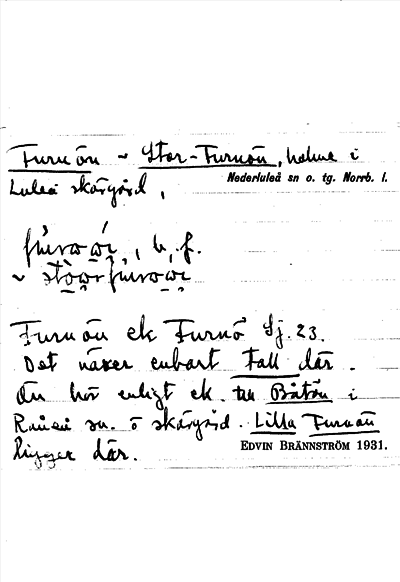 Furuön ~ Stor-Furuön, holme i
Nederluleå sn o. tg. Norrb. l.
Luleå skärgård,
b. f.
~
Furuön ek Furuö Sj. 23.
Det växer enbart tall där.
Ön hör enligt ek. till Båtön i
Råneå sn. o skärgård. Lilla Furuön
ligger där.
EDVIN BRÄNNSTRÖM 1931.